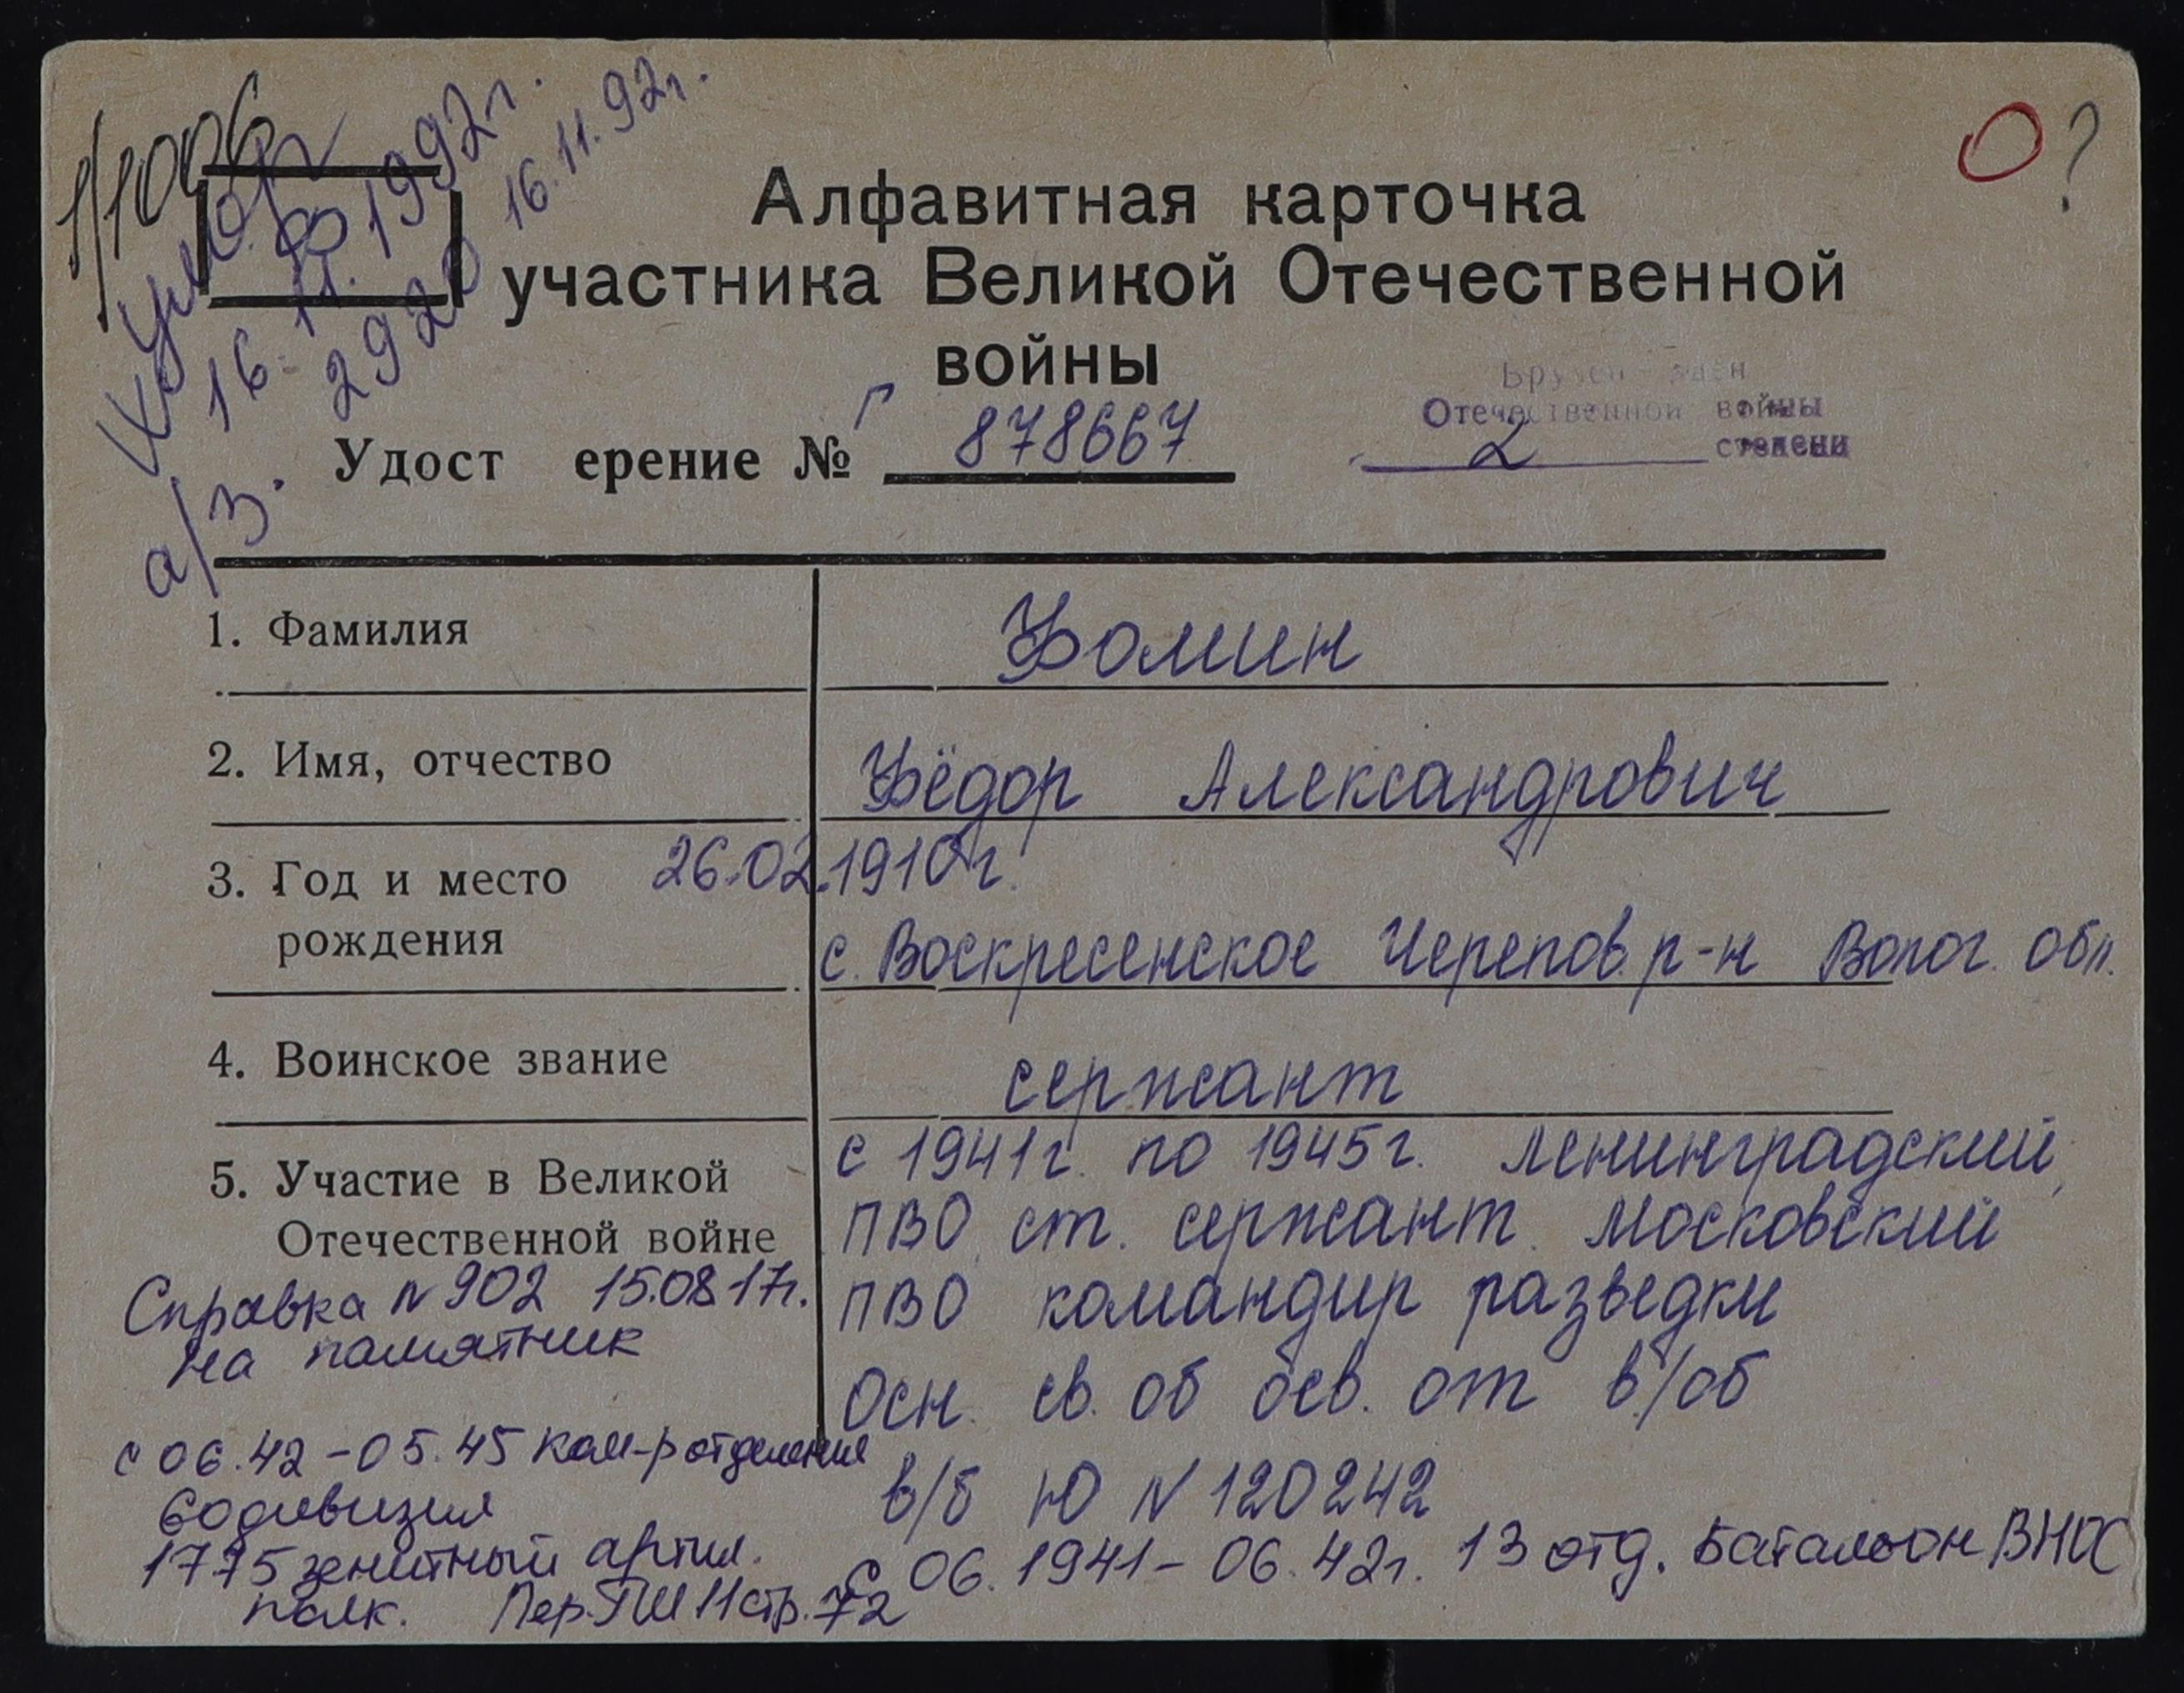 1/1006
умер
16.11.1992г.
а/з. 2920 16.11.92г.
О ?
Алфавитная карточка
участника Великой Отечественной
войны
Удост ерение № Г 878667
Отечественной войны
2 степени
1. Фамилия Фомин
2. Имя, отчество Фёдор Александрович
3. Год и место 26.02.1910г.
рождения с. Воскресенское Черепов. р-н Волог. обл.
4. Воинское звание сержант
5. Участие в Великой с 1941г. по 1945г. Ленинградский,
Отечественной войне ПВО, ст. сержант. Московский
ПВО командир разведки
Осн. св. об осв. от в/об
в/б Ю N 120242
с 06.1941-06.42г. 13 отд. батальон ВНОС
Справка N 902 15.08.17г.
на памятник
с 06.42-05.45 ком-р отделения
60 дивизия
1775 зенитный артил.
полк. Пер. ГШ 11 стр. 72